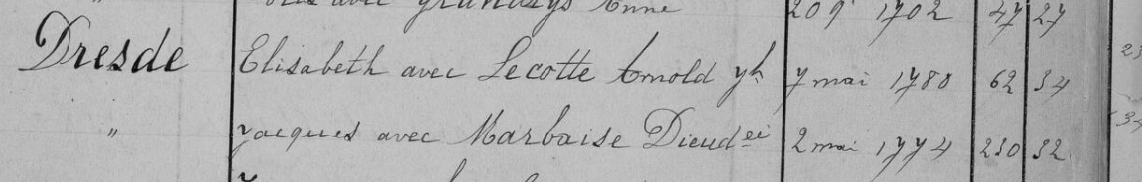 " avec Grandrys Anne 209 1702 47 27
Dresde Elisabeth avec Lecotte Arnold yh 7 mai 1780 62 34
" Jacques avec Marbaise Dieudei 2 mai 1774 230 32